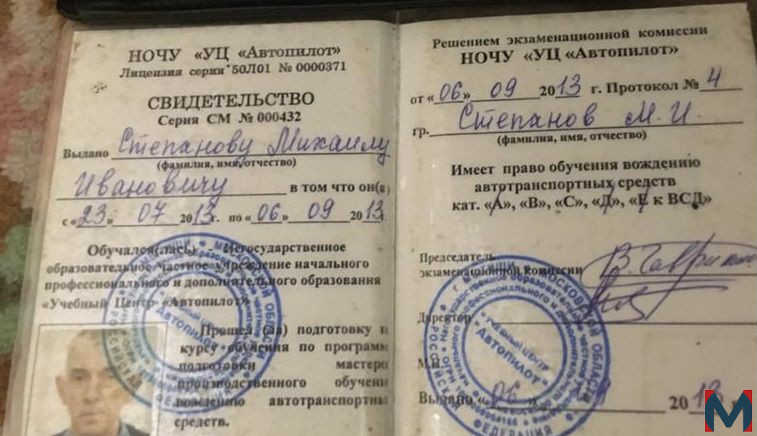 НОЧУ «УЦ «Автопилот»
Лицензия серия 50Л01 № 0000371
СВИДЕТЕЛЬСТВО
Серия СМ № 000432
Выдано Степанову Михаилу
(фамилия, имя, отчество)
Ивановичу в том что он(а)
с «23» 07 2013г. по «06» 09 2013г.
Обучался(лась) Негосударственное
образовательное частное учреждение начального
профессионального и дополнительного образования
«Учебный Центр «Автопилот»
Прошел (ла) подготовку п
курсу обучения по программ
подготовки мастеро
производственного обучени
вождению автотранспортны
средств.
Решением экзаменационной комиссии
НОЧУ «УЦ «Автопилот»
от «06» 09 2013 г. Протокол № 4
гр. Степанов М. И.
(фамилия, имя, отчество)
Имеет право обучения вождению
автотранспортных средств
кат. «А», «В», «С», «Д», «Е к ВСД»
Председатель
экзаменационной комиссии В. Гаври
Директор
М.П.
Выдано «06» 2013
УЧЕБНЫЙ ЦЕНТР
"АВТОПИЛОТ"
МОСКОВСКАЯ ОБЛАСТЬ
РОССИЙСКАЯ ФЕДЕРАЦИЯ
М